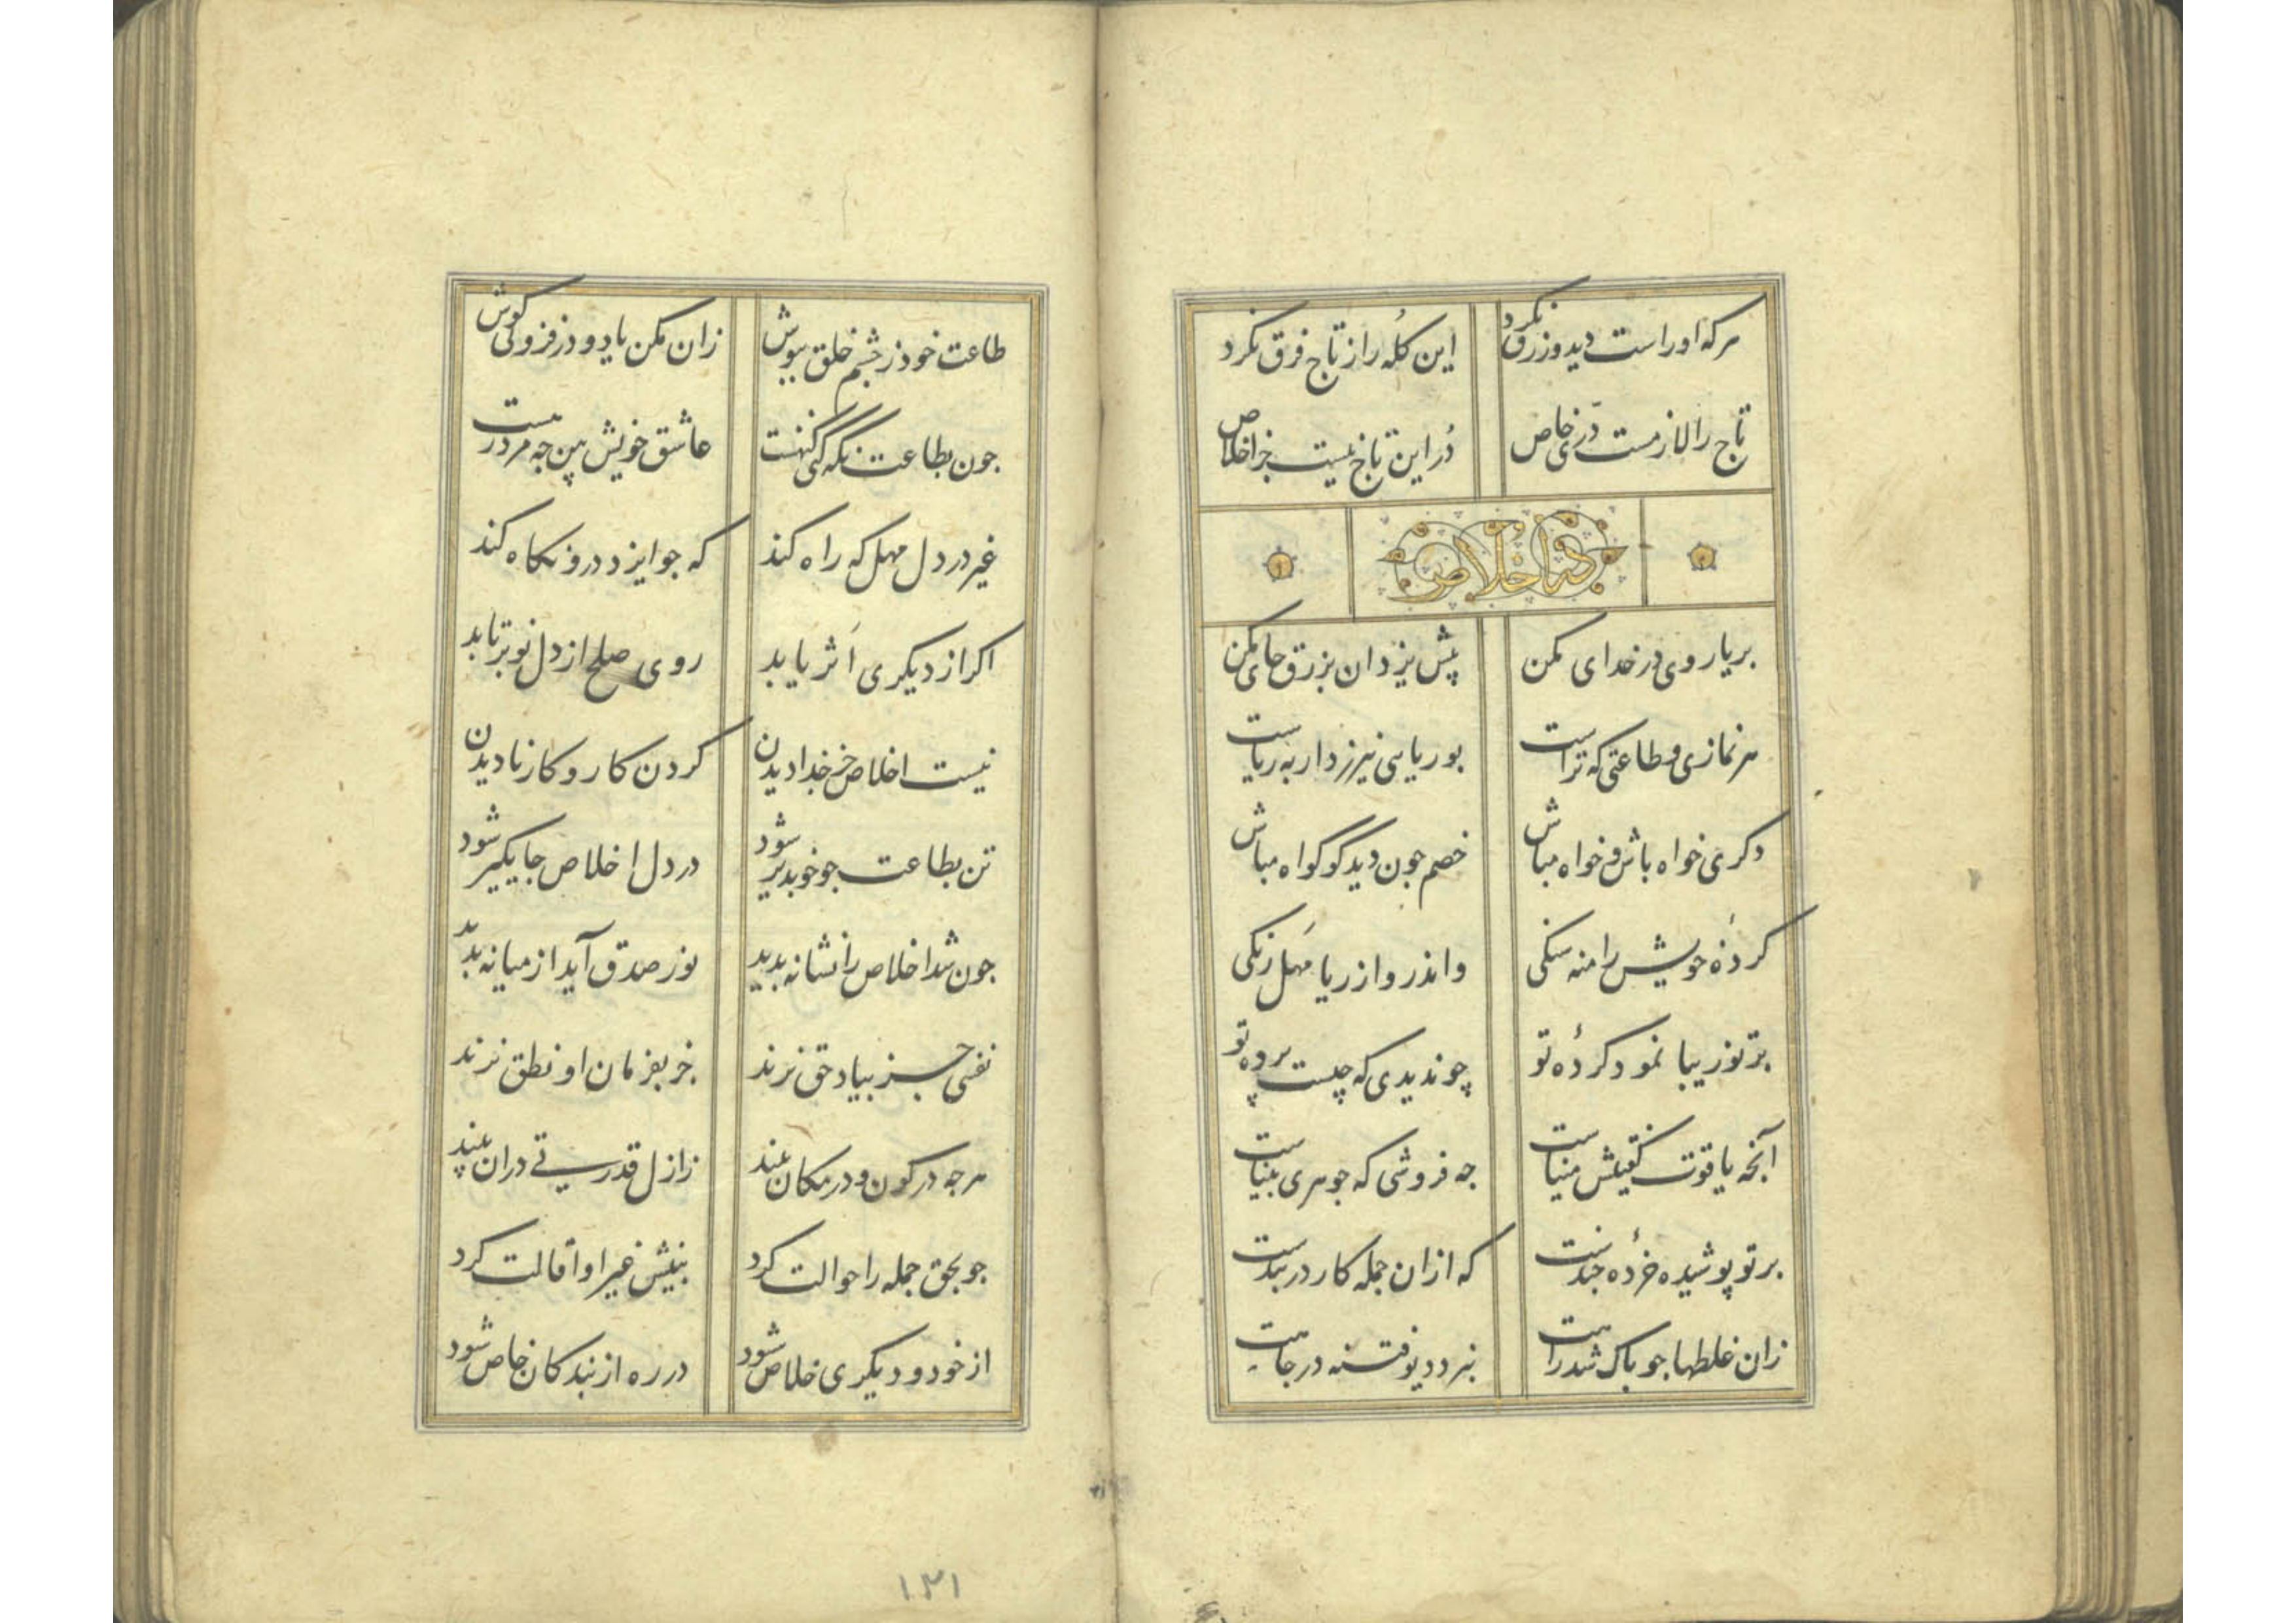 مرکه او راست دید و زرق نکرد این کله را ز تاج فرق نکرد
تاج را لازمست درّی خاص دُر این تاج نیست جز اخلاص
در اخلاص
بریا روی در خدای مکن پیش یزدان بزرق جای مکن
هر نمازی و طاعتی که تراست بوریایی نیرزد ار به ریاست
دکری خواه باش و خواه مباش خصم جون دید گو گواه مباش
کردهٔ خویش را منه سنکی واندرو از ریا مهل زنکی
بر تو زیبا نمود کردهٔ تو چو ندیدی که چیست پرده تو
آنچه یاقوت کفتیش میناست جه فروشی که جوهری بیناست
بر تو پوشیده خردهٔ جندست که از ان جمله کار در بندست
زان غلطها جو پاک شد راهت نبرد دیو فتنه در جاهت
طاعت خود ز چشم خلق بپوش زان مکن یاد و در فزونی کوش
جون بطاعت نکه کنی کنهست عاشق خویش بین جه مرد رهست
غیر در دل مهل که راه کند که جو ایزد درو نکاه کند
اکر از دیکری اثر یابد روی صلح از دل تو برتابد
نیست اخلاص جز خدا دیدن کردن کار و کار نادیدن
تن بطاعت جو خوپذیر شود در دل اخلاص جایکیر شود
جون شد اخلاص را نشانه بدید نور صدق آید از میانه بدید
نفسی جز بیاد حق نزند جز بفرمان او نطق نزند
مرجه در کون و در مکان بیند ز ازل قدرتی در ان بیند
جو بحق جمله را حوالت کرد بینش غیر او اقالت کرد
از خود و دیکری خلاص شود در ره از بندکان خاص شود
۱۳۱